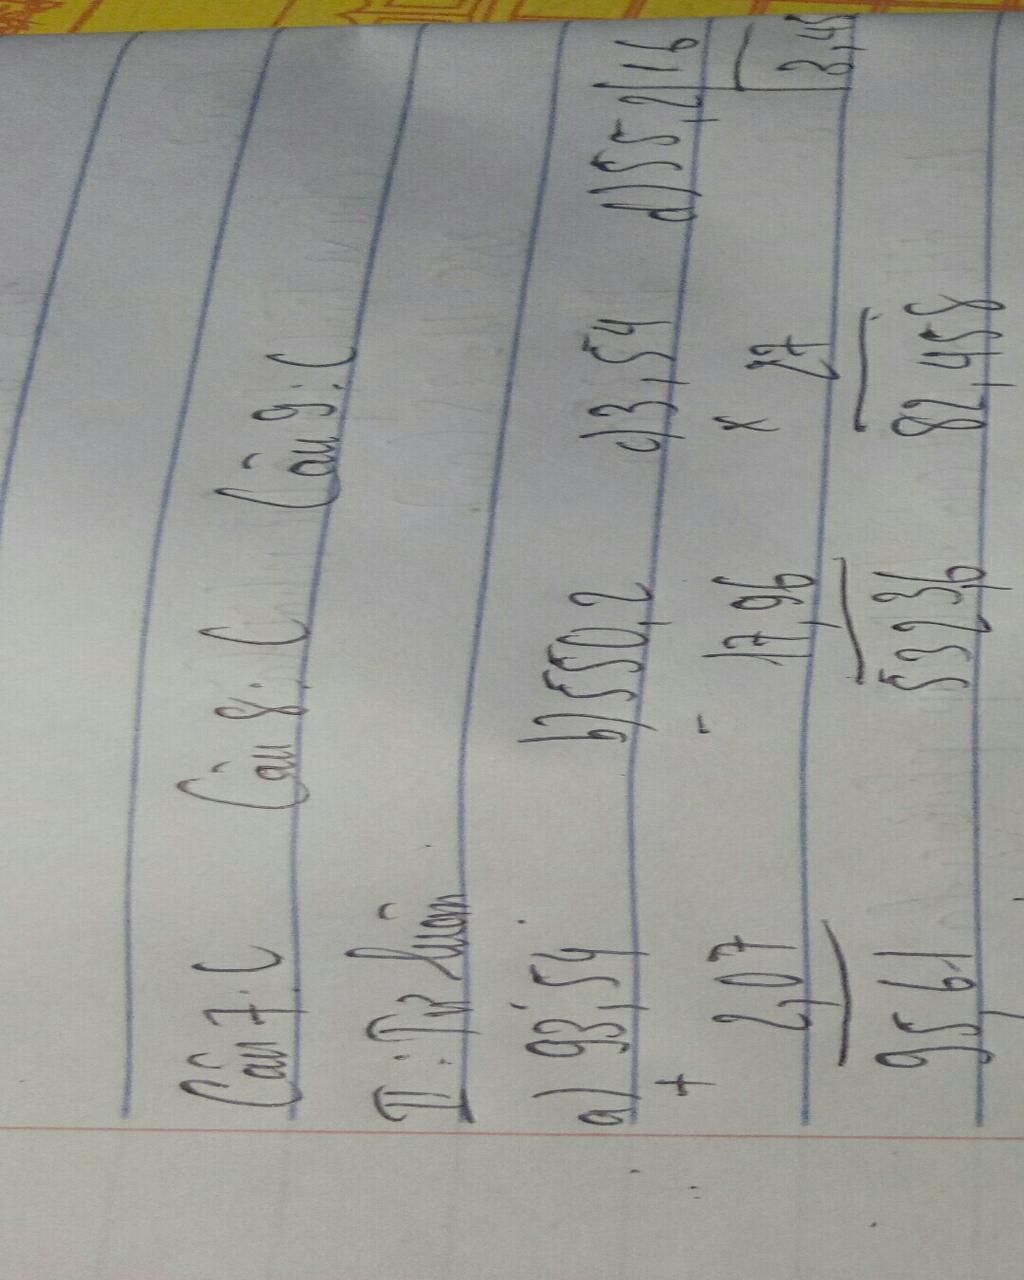 Câu 7: C Câu 8: C Câu 9: C
II: Tự luận
a) 93,54 b) 550,2 c) 3,54 d) 55,2 16
+ 2,07 - 17,96 x 27 3,45
95,61 532,36 82,458